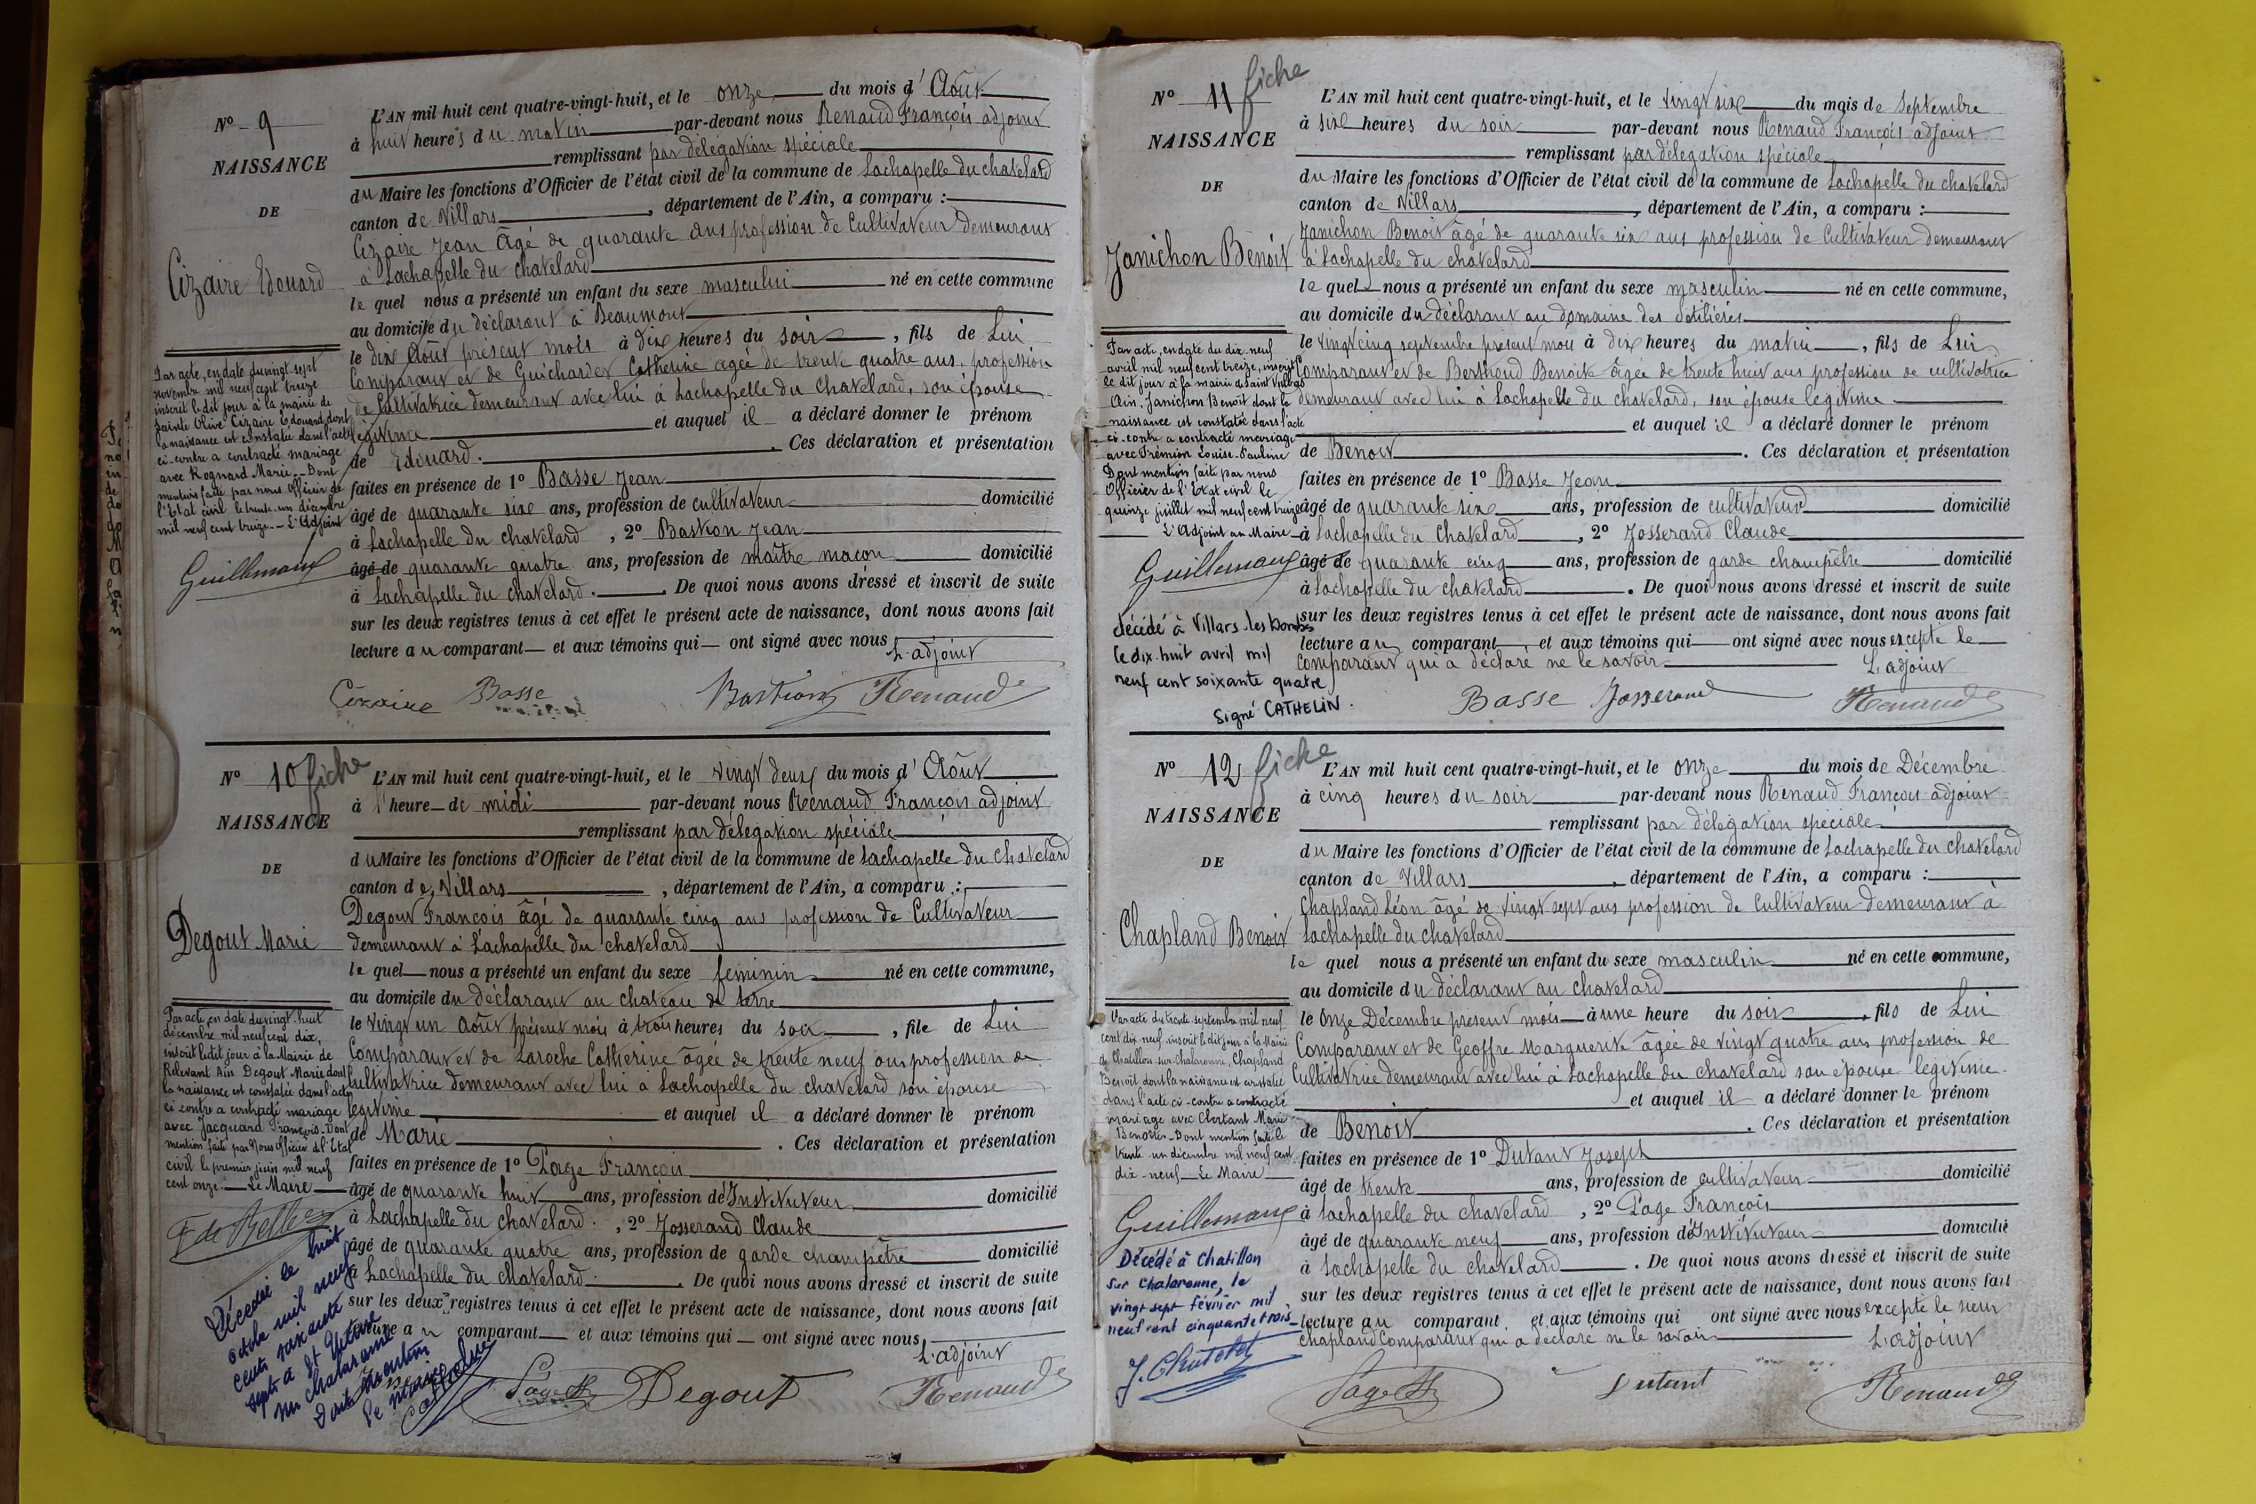 N° 9
NAISSANCE
DE
Cizaire Edouard
L'AN mil huit cent quatre-vingt-huit, et le onze du mois d'Août
à huit heures du matin par-devant nous Renaud François adjoint
remplissant par délégation spéciale
du Maire les fonctions d'Officier de l'état civil de la commune de Lachapelle du chatelard
canton de Villars, département de l'Ain, a comparu :
Cizaire Jean âgé de quarante ans profession de Cultivateur demeurant
à Lachapelle du chatelard
le quel nous a présenté un enfant du sexe masculin né en cette commune
au domicile du déclarant à Beaumont
le dix Août présent mois à dix heures du soir, fils de Lui
Comparant et de Guichardet Catherine agée de trente quatre ans, profession
de Cultivatrice demeurant avec lui à Lachapelle du Chatelard, son épouse
légitime et auquel il a déclaré donner le prénom
de Edouard. Ces déclaration et présentation
faites en présence de 1° Basse Jean
âgé de quarante six ans, profession de cultivateur domicilié
à Lachapelle du chatelard, 2° Bastion Jean
âgé de quarante quatre ans, profession de maître maçon domicilié
à Lachapelle du chatelard. De quoi nous avons dressé et inscrit de suite
sur les deux registres tenus à cet effet le présent acte de naissance, dont nous avons fait
lecture au comparant et aux témoins qui ont signé avec nous
L'adjoint
Cizaire Basse Bastion Renaud
Par acte, en date du vingt sept
novembre mil neuf cent treize
inscrit le dit jour à la mairie de
Sainte Olive Cizaire Edouard, dont
la naissance est constatée dans l'acte
ci-contre a contracté mariage
avec Rognard Marie. Dont
mention faite par nous Officier de
l'Etat civil le trente-un décembre
mil neuf cent treize. L'Adjoint
Guillemaux
N° 10 fiche
NAISSANCE
DE
Degout Marie
L'AN mil huit cent quatre-vingt-huit, et le vingt deux du mois d'Août
à l'heure de midi par-devant nous Renaud François adjoint
remplissant par délégation spéciale
du Maire les fonctions d'Officier de l'état civil de la commune de Lachapelle du Chatelard
canton de Villars, département de l'Ain, a comparu :
Degout François âgé de quarante cinq ans profession de Cultivateur
demeurant à Lachapelle du chatelard
le quel nous a présenté un enfant du sexe feminin né en cette commune,
au domicile du déclarant au chateau de terre
le vingt un Août présent mois à trois heures du soir, file de Lui
Comparant et de Laroche Catherine âgée de trente neuf ans profession de
Cultivatrice demeurant avec lui à Lachapelle du chatelard son épouse
légitime et auquel il a déclaré donner le prénom
de Marie. Ces déclaration et présentation
faites en présence de 1° Page François
âgé de quarante huit ans, profession d'Instituteur domicilié
à Lachapelle du chatelard., 2° Josserand Claude
âgé de quarante quatre ans, profession de garde champêtre domicilié
à Lachapelle du chatelard. De quoi nous avons dressé et inscrit de suite
sur les deux registres tenus à cet effet le présent acte de naissance, dont nous avons fait
lecture au comparant et aux témoins qui ont signé avec nous
L'adjoint
Page Degout Renaud
Par acte, en date du vingt-huit
décembre mil neuf cent dix,
inscrit le dit jour à la Mairie de
Relevant Ain Degout Marie dont
la naissance est constatée dans l'acte
ci-contre a contracté mariage
avec Jacquard François. Dont
mention faite par Nous Officier de l'Etat
civil le premier juin mil neuf
cent onze. Le Maire
Décédé le huit
octobre mil neuf
cent soixante
sept à St
sur Chalaronne
N° 11 fiche
NAISSANCE
DE
Janichon Benoit
L'AN mil huit cent quatre-vingt-huit, et le vingt six du mois de Septembre
à six heures du soir par-devant nous Renaud François adjoint
remplissant par délégation spéciale
du Maire les fonctions d'Officier de l'état civil de la commune de Lachapelle du chatelard
canton de Villars, département de l'Ain, a comparu :
Janichon Benoit âgé de quarante six ans profession de Cultivateur demeurant
à Lachapelle du chatelard
le quel nous a présenté un enfant du sexe masculin né en cette commune,
au domicile du déclarant au domaine des
le vingt cinq septembre présent mois à dix heures du matin, fils de Lui
Comparant et de Berthoud Benoite âgée de trente huit ans profession de cultivatrice
demeurant avec lui à Lachapelle du chatelard, son épouse légitime
et auquel il a déclaré donner le prénom
de Benoit. Ces déclaration et présentation
faites en présence de 1° Basse Jean
âgé de quarante six ans, profession de cultivateur domicilié
à Lachapelle du Chatelard, 2° Josserand Claude
âgé de quarante cinq ans, profession de garde champêtre domicilié
à Lachapelle du chatelard. De quoi nous avons dressé et inscrit de suite
sur les deux registres tenus à cet effet le présent acte de naissance, dont nous avons fait
lecture au comparant et aux témoins qui ont signé avec nous excepté le
Comparant qui a déclaré ne le savoir
L'adjoint
Basse Josserand Renaud
Par acte, en date du dix-neuf
avril mil neuf cent treize, inscrit
le dit jour à la mairie de Saint Vulbas
Ain. Janichon Benoit dont la
naissance est constatée dans l'acte
ci-contre a contracté mariage
avec Prémion Louise-Pauline
Dont mention faite par nous
Officier de l'Etat civil le
quinze juillet mil neuf cent treize
L'Adjoint au Maire
Guillemaux
décédé à Villars-les-Dombes
le dix-huit avril mil
neuf cent soixante quatre
Signé CATHELIN.
N° 12 fiche
NAISSANCE
DE
Chapland Benoit
L'AN mil huit cent quatre-vingt-huit, et le onze du mois de Décembre
à cinq heures du soir par-devant nous Renaud François adjoint
remplissant par délégation spéciale
du Maire les fonctions d'Officier de l'état civil de la commune de Lachapelle du chatelard
canton de Villars, département de l'Ain, a comparu :
Chapland Léon âgé de vingt sept ans profession de Cultivateur demeurant à
Lachapelle du chatelard
le quel nous a présenté un enfant du sexe masculin né en cette commune,
au domicile du déclarant au chatelard
le Onze Décembre présent mois à une heure du soir, fils de Lui
Comparant et de Geoffre Marguerite âgée de vingt quatre ans profession de
Cultivatrice demeurant avec lui à Lachapelle du chatelard son épouse légitime
et auquel il a déclaré donner le prénom
de Benoit. Ces déclaration et présentation
faites en présence de 1° Dutant Joseph
âgé de trente ans, profession de cultivateur domicilié
à Lachapelle du chatelard, 2° Page François
âgé de quarante neuf ans, profession d'Instituteur domicilié
à Lachapelle du chatelard. De quoi nous avons dressé et inscrit de suite
sur les deux registres tenus à cet effet le présent acte de naissance, dont nous avons fait
lecture au comparant et aux témoins qui ont signé avec nous excepté le sieur
Chapland Comparant qui a déclaré ne le savoir
L'adjoint
Page Dutant Renaud
Par acte du trente septembre mil neuf
cent dix-neuf inscrit le dit jour à la Mairie
de Chatillon-sur-Chalaronne, Chapland
Benoit dont la naissance est constatée
dans l'acte ci-contre a contracté
mariage avec Marie
Dont mention faite le
trente-un décembre mil neuf cent
dix-neuf Le Maire
Guillemaux
Décédé à Chatillon
sur Chalaronne, le
vingt sept février mil
neuf cent cinquante trois